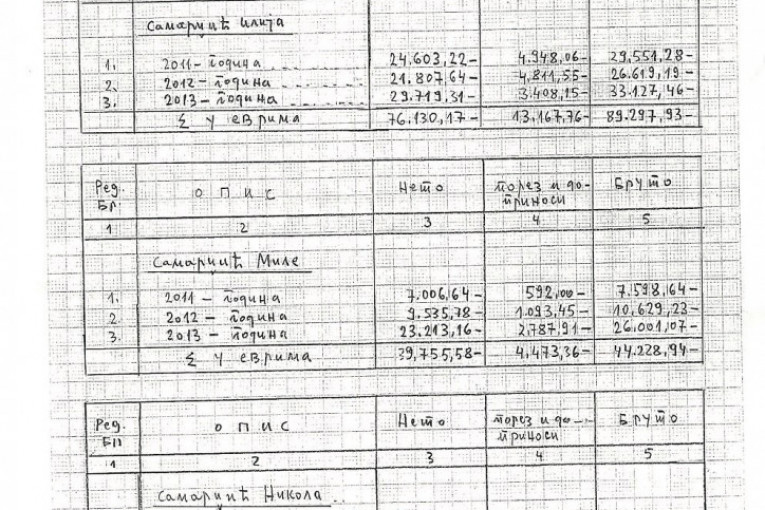 Самарџић Илија
1. 2011 - година 24.603,22- 4.948,06- 29.551,28-
2. 2012 - година 21.807,64- 4.811,55- 26.619,19-
3. 2013 - година 29.719,31- 3.408,15- 33.127,46-
Σ у еврима 76.130,17- 13.167,76- 89.297,93-
Ред. Бр. О П И С Нето Порез и до- приноси Бруто
1 2 3 4 5
Самарџић Миле
1. 2011 - година 7.006,64- 592,00- 7.598,64-
2. 2012 - година 9.535,78- 1.093,45- 10.629,23-
3. 2013 - година 23.213,16- 2.787,91- 26.001,07-
Σ у еврима 39.755,58- 4.473,36- 44.228,94-
Ред. Бр О П И С Нето Порез и до- приноси Бруто
1 2 3 4 5
Самарџић Никола